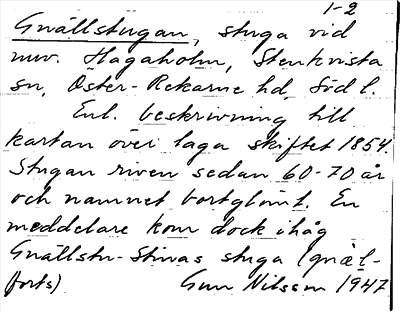 1-2
Gnällstugan, stuga vid
nuv. Hagaholm, Stenkvista
sn, Öster-Rekarne hd, Södl.
Enl. beskrivning till
kartan över laga skiftet 1854.
Stugan riven sedan 60-70 år
och namnet bortglömt. En
meddelare kom dock ihåg
Gnällstu-Stinas stuga (gnäl-
forts) Gun Nilsson 1947